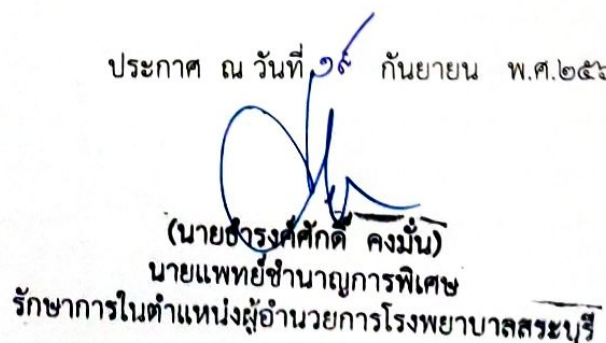 ประกาศ ณ วันที่ ๑๙ กันยายน พ.ศ.๒๕๖
(นายธำรงค์ศักดิ์ คงมั่น)
นายแพทย์ชำนาญการพิเศษ
รักษาการในตำแหน่งผู้อำนวยการโรงพยาบาลสระบุรี